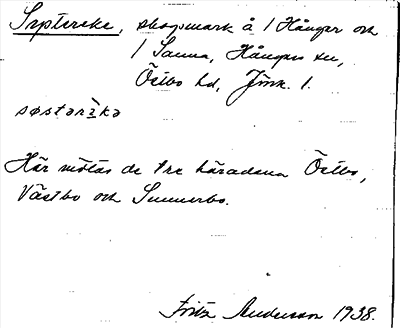 Systereke, skogsmark å 1 Hånger och
1 Sanna, Hångers sn,
Östbo hd, Jönk. l.
søstərèkə
Här mötas de tre häradena Östbo,
Västbo och Sunnerbo.
Fritz Anderson 1938.